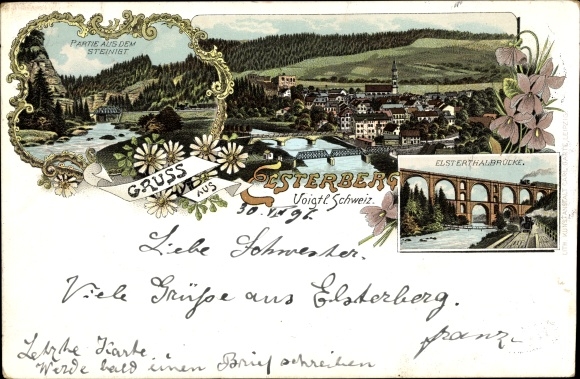 PARTIE AUS DEM
STEINIGT
GRUSS
AUS
ELSTERBERG
Voigtl. Schweiz.
ELSTERTHALBRÜCKE.
30. VII 97.
Liebe Schwester.
Viele Grüße aus Elsterberg.
Franz.
Letzte Karte
Werde bald einen Brief schreiben